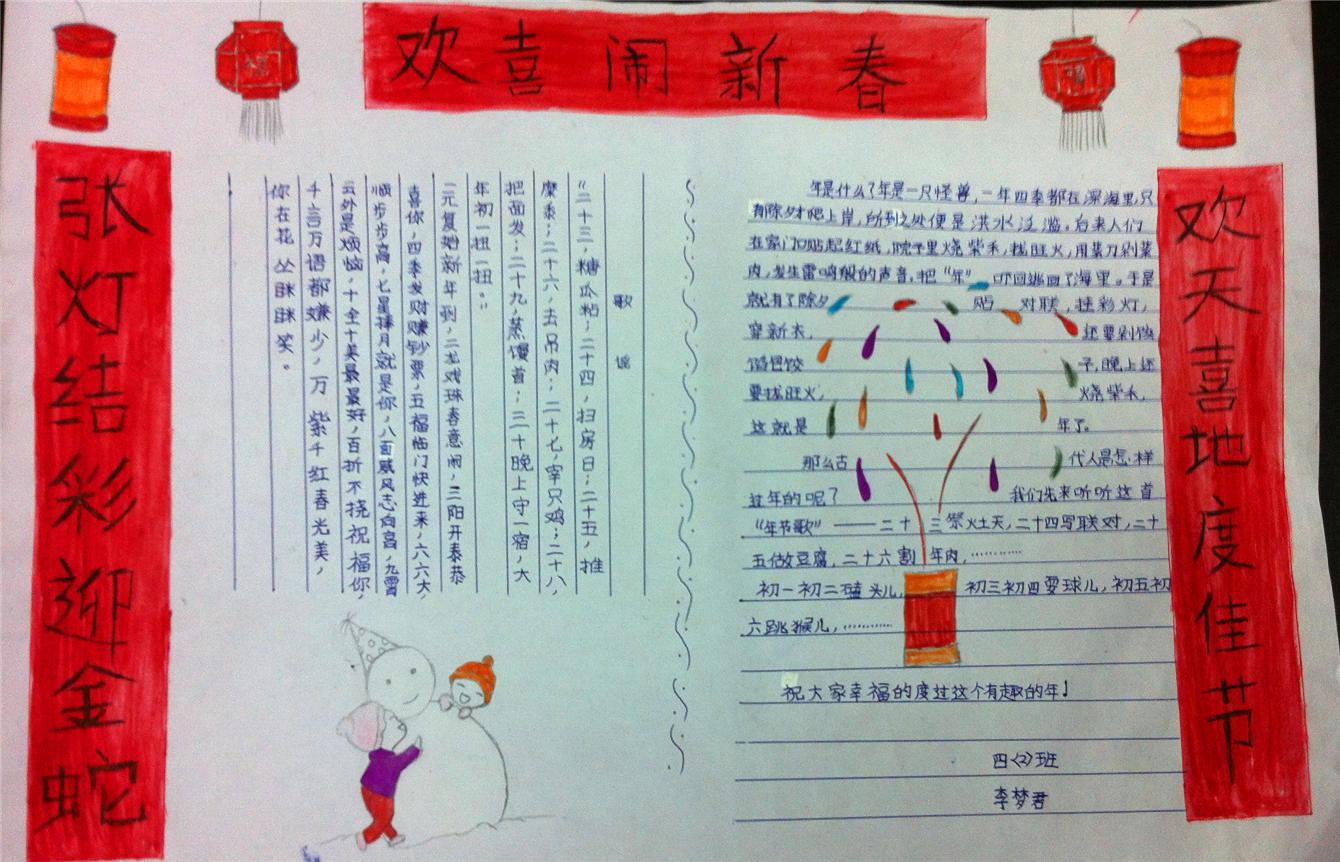 欢喜闹新春
欢天喜地度佳节
张灯结彩迎金蛇
福
年是什么?年是一只怪兽,一年四季都在深海里,只
有除夕才爬上岸,所到之处便是洪水泛滥。后来人们
在家门口贴起红纸,院子里烧柴禾,拢旺火,用菜刀剁菜
肉,发生雷鸣般的声音,把“年” 吓回逃回了海里。于是
就有了除夕 贴 对联,挂彩灯,
穿新衣, 还要剁饺
馅包饺 子,晚上还
要拢旺火, 烧柴禾,
这就是 年了。
那么古 代人是怎样
过年的呢? 我们先来听听这首
“年节歌”——二十 三祭灶天,二十四写联对,二十
五做豆腐,二十六割 年肉,…………
初一初二磕头儿, 初三初四耍球儿,初五初
六跳猴儿,…………
祝大家幸福的度过这个有趣的年!
四〈2〉班
李梦君
歌 谣
“二十三,糖瓜粘;二十四,扫房日;二十五,推
糜黍;二十六,去吊肉;二十七,宰只鸡;二十八,
把面发;二十九,蒸馒首;三十晚上守一宿,大
年初一扭一扭。”
一元复始新年到,二龙戏珠春意闹,三阳开泰恭
喜你,四季发财赚钞票,五福临门快进来,六六大
顺步步高,七星捧月就是你,八面威风志向高,九霄
云外是烦恼,十全十美最最好,百折不挠祝福你,
千言万语都嫌少,万紫千红春光美,
你在花丛眯眯笑。